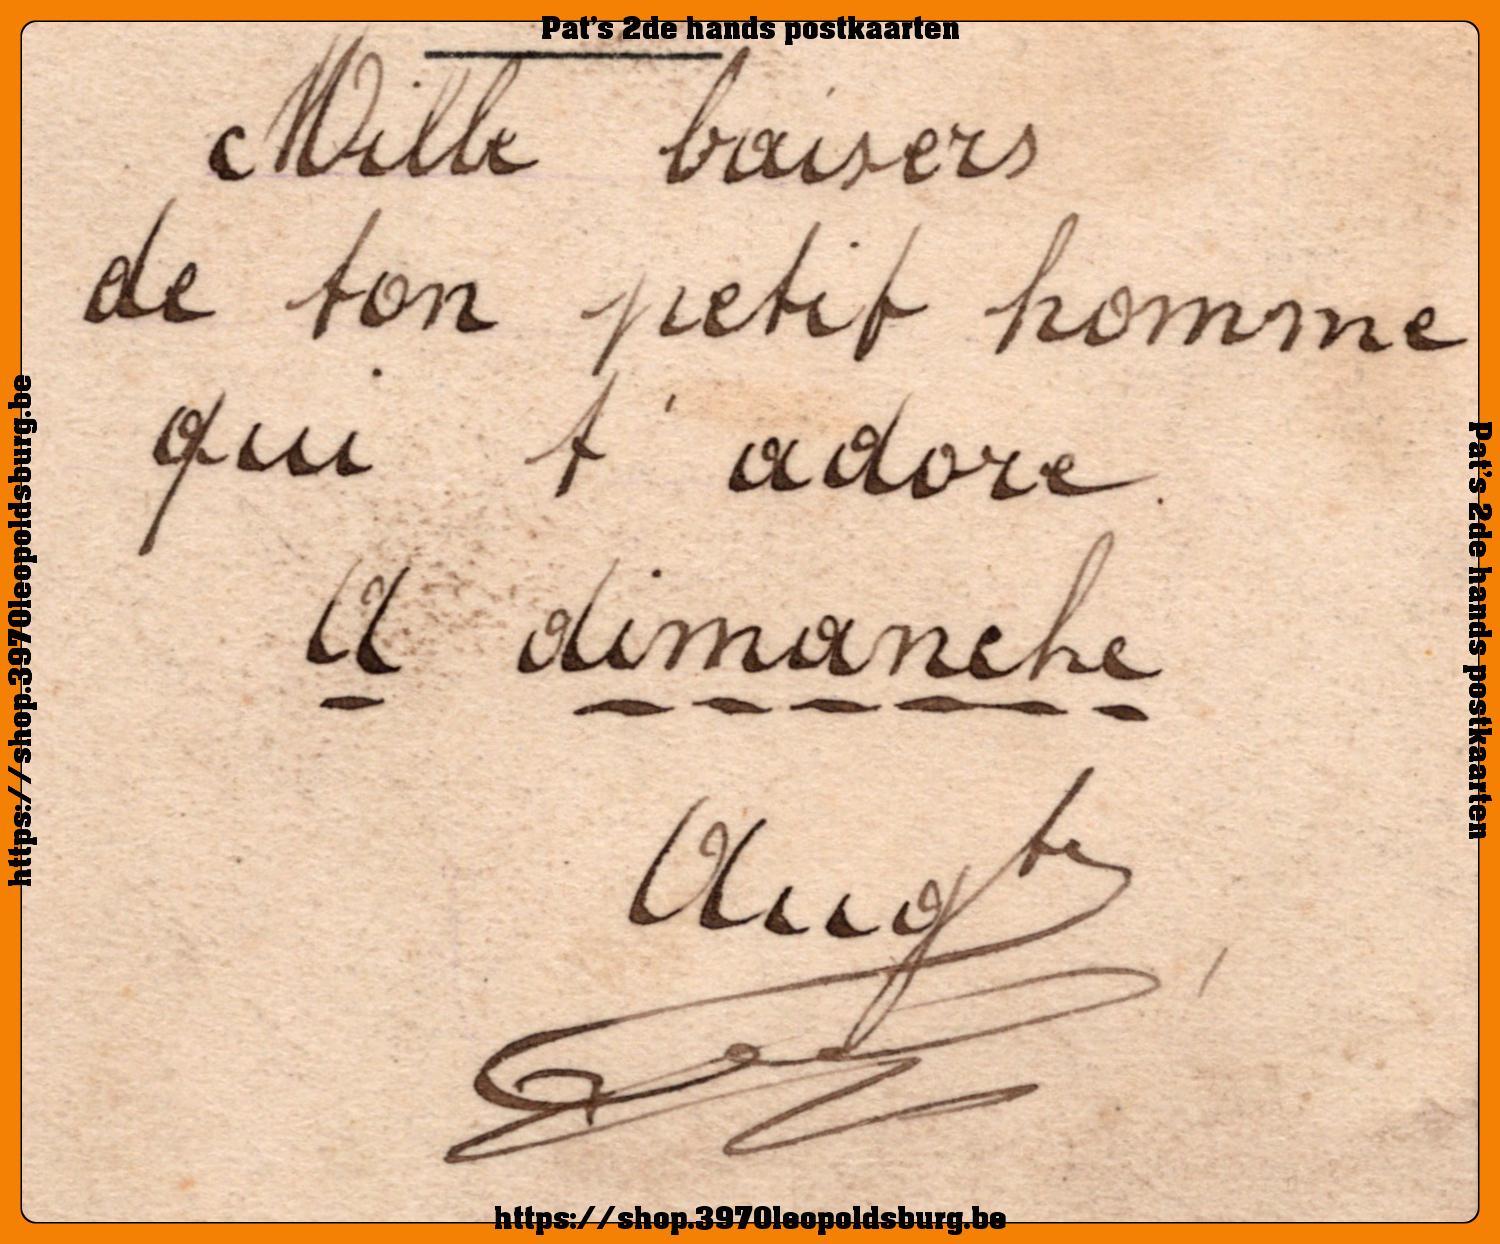 Pat's 2de hands postkaarten
Mille baisers
de ton petit homme
qui t'adore.
A dimanche
Augte
https://shop.3970leopoldsburg.be
Pat's 2de hands postkaarten
https://shop.3970leopoldsburg.be